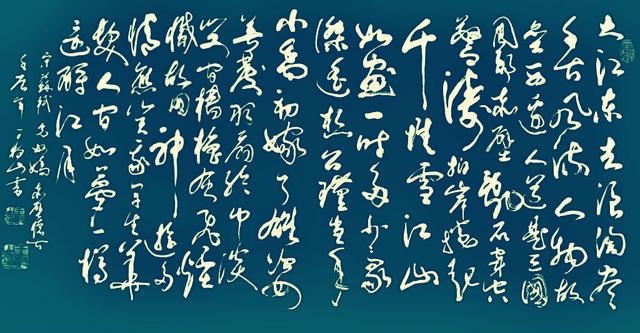 大江东去浪淘尽
千古风流人物故
垒西边人道是三國
周郎赤壁乱石穿空
惊涛拍岸捲起
千堆雪江山
如画一时多少豪
杰遥想公瑾当年
小乔初嫁了雄姿
英发羽扇纶巾谈
笑间樯橹灰飞烟
灭故国神游多
情应笑我早生华
发人间如梦一樽
还酹江月
宋苏轼念奴娇赤壁怀古